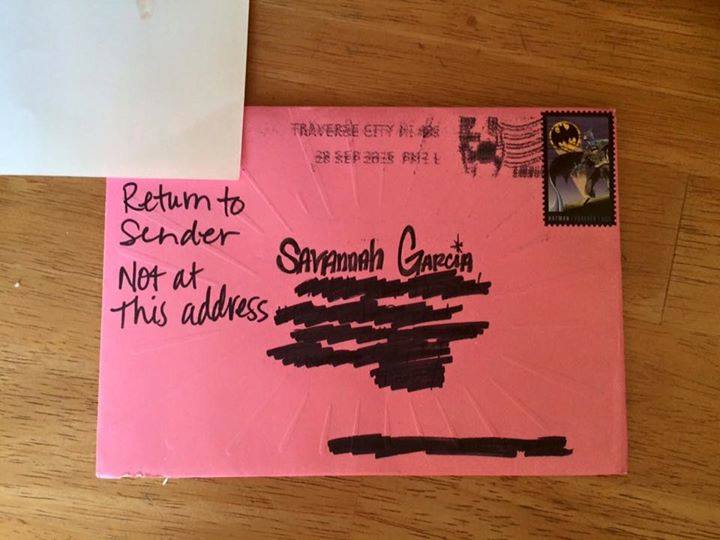 TRAVERSE CITY MI
28 SEP 2015 PM 2 L
Return to
Sender
Not at
This address
Savannah Garcia
BATMAN